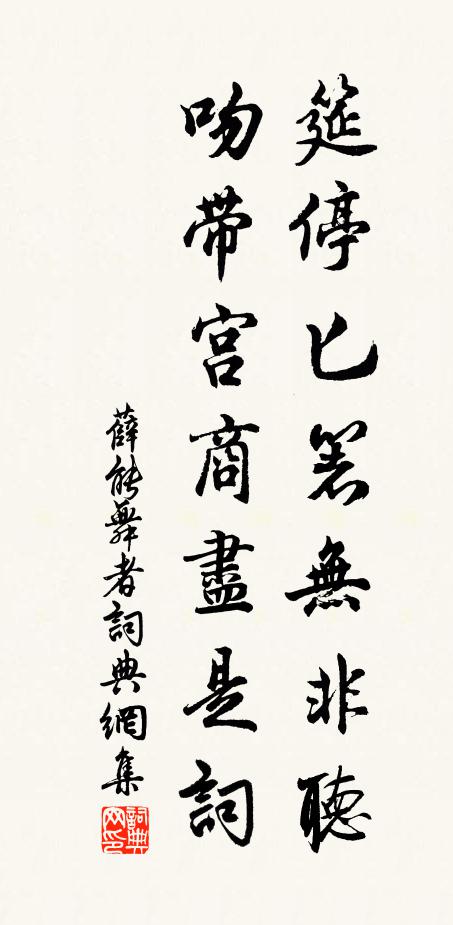 筵停匕箸無非聽
吻帶宮商盡是詞
薛能舞者詞典網集
詞典网印